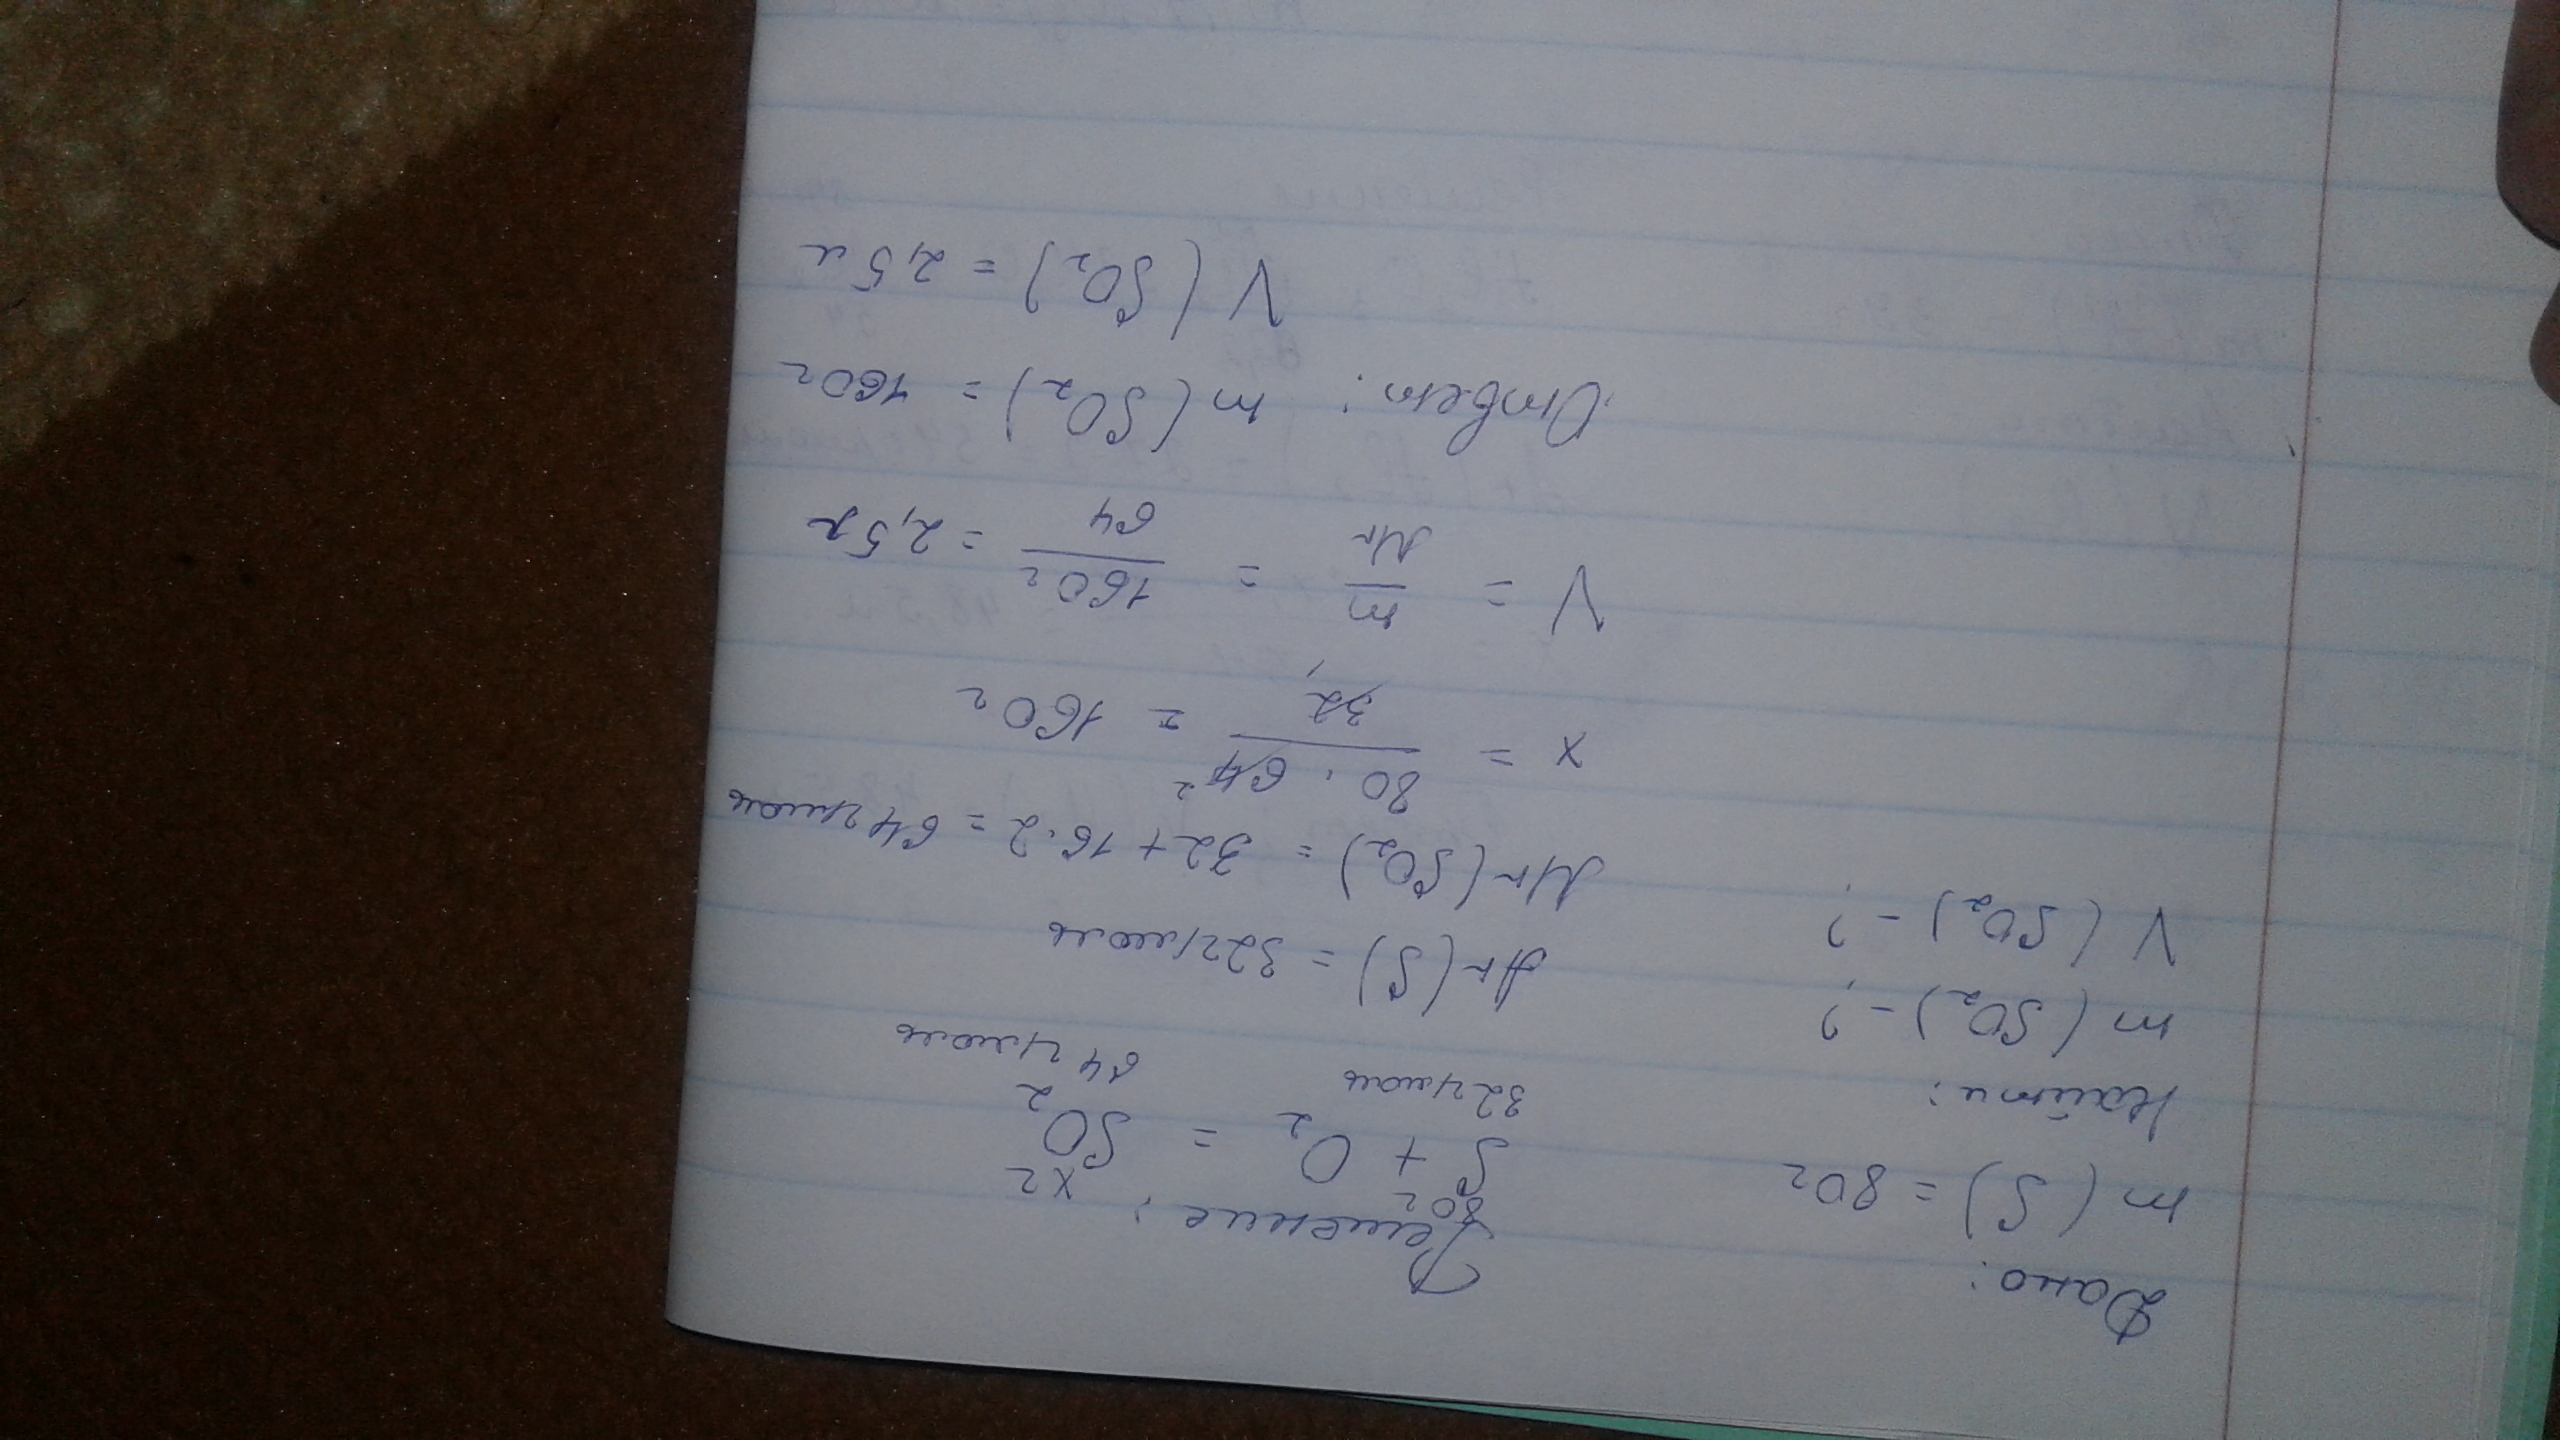 Дано:
m (S) = 80г
Найти:
m (SO2) - ?
V (SO2) - ?
Решение:
80г xг
S + O2 = SO2
32г/моль 64г/моль
Ar (S) = 32г/моль
Mr (SO2) = 32 + 16·2 = 64г/моль
x = 80 · 64 2 / 32 1 = 160г
V = m / Mr = 160г / 64 = 2,5л
Ответ: m (SO2) = 160г
V (SO2) = 2,5л